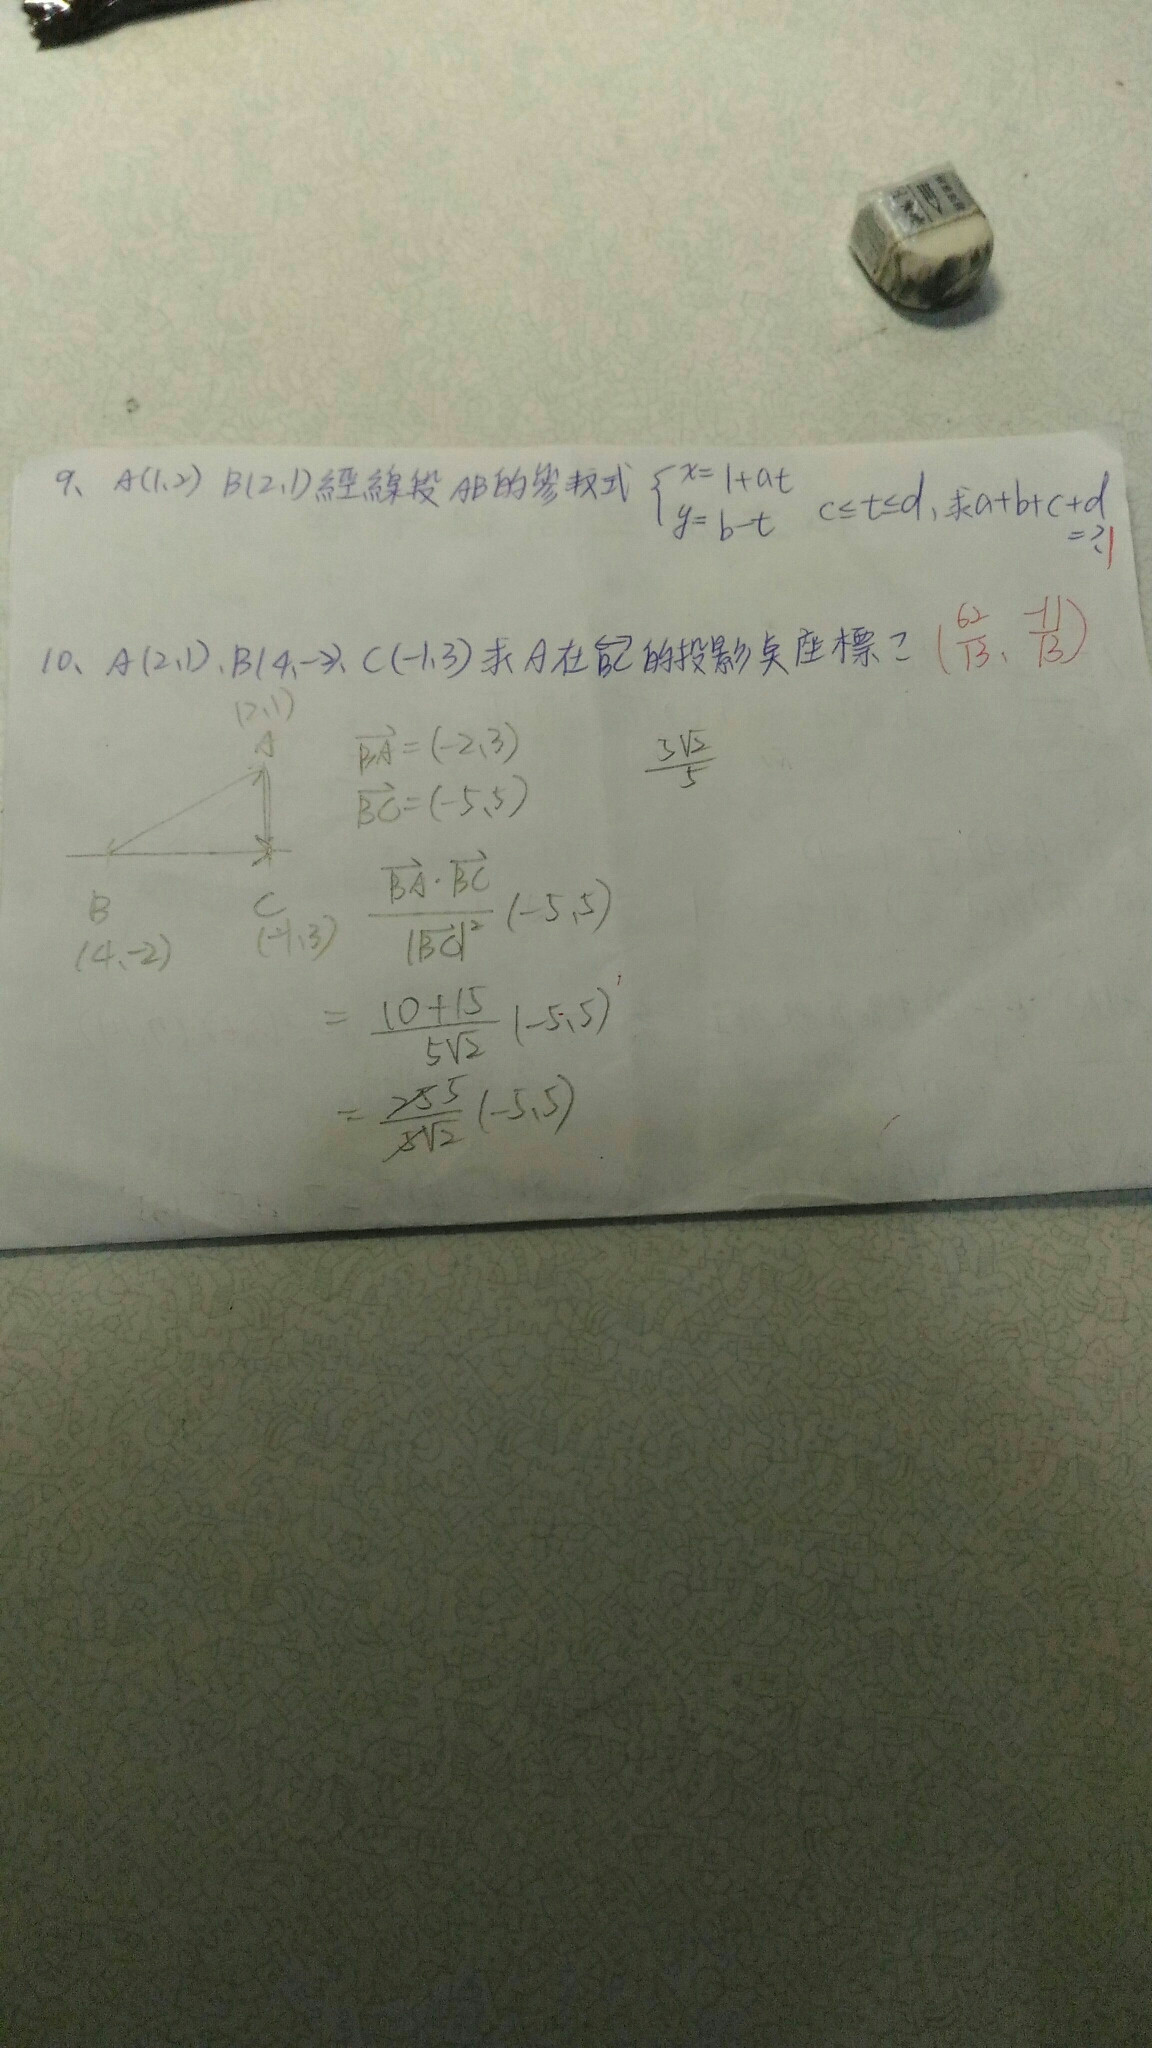 9、A(1,2) B(2,1)經線段AB的參數式 { x=1+at
y=b-t c≤t≤d,求a+b+c+d
=?1
10、A(2,1)、B(4,-2)、C(-1,3)求A在BC的投影点座標? (62/13、-11/13)
(2,1)
A
BA=(-2,3)
3√2/5
BC=(-5,5)
B C
(4,-2) (-1,3)
BA·BC/|BC|² (-5,5)
= 10+15/5√2 (-5,5)
= 25 5/5√2 (-5,5)